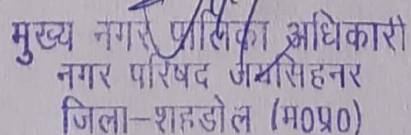 मुख्य नगर पालिका अधिकारी
नगर परिषद जयसिहनर
जिला-शहडोल (म०प्र०)